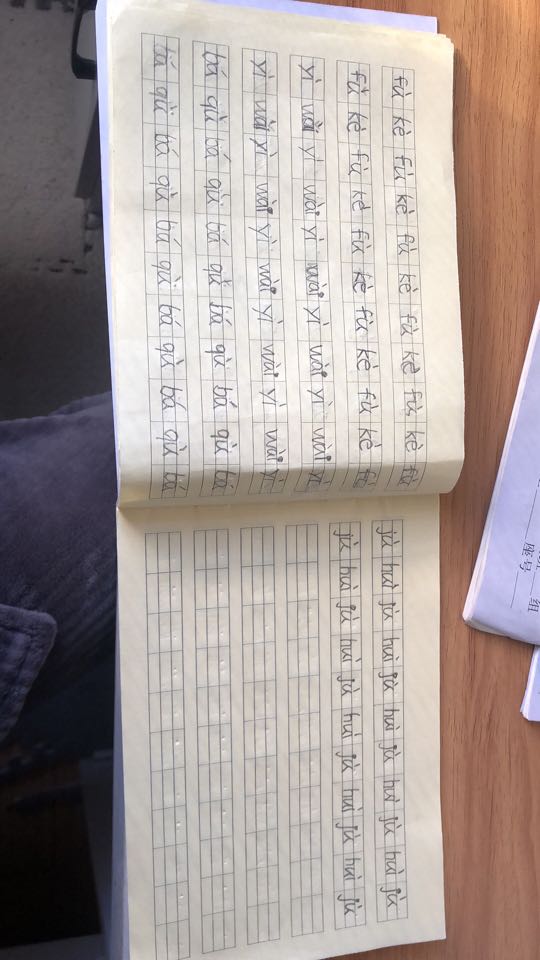 fù kè fù kè fù kè fù kè fù kè fù
fù kè fù kè fù kè fù kè fù kè fù
yì wài yì wài yì wài yì wài yì wài yì
yì wài yì wài yì wài yì wài yì wài yì
bá qù bá qù bá qù bá qù bá qù bá
bá qù bá qù bá qù bá qù bá qù bá
jù huì jù huì jù huì jù huì jù huì jù
jù huì jù huì jù huì jù huì jù huì jù
组
座号